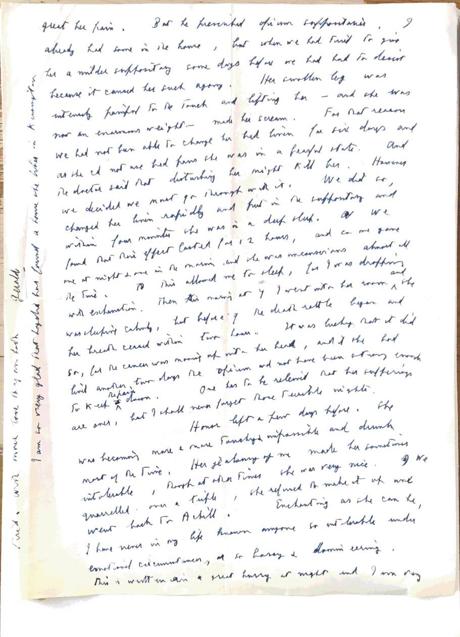 great her pain. But he prescribed opium suppositories. I
already had some in the house, but when we had tried to give
her a milder suppository some days before we had had to desist
because it caused her such agony. Her swollen leg was
intensely painful to the touch and lifting her – and she was
now an enormous weight – made her scream. For that reason
we had not been able to change her bed linen for six days and
as she cd not use bed pans she was in a fearful state. And
the doctor said that disturbing her might kill her. However
we decided we must go through with it. We did so,
changed her linen rapidly and put in the suppository and
within four minutes she was in a deep sleep. We
found that this effect lasted for 12 hours, and so we gave
one at night & one in the morning and she was unconscious almost all
the time. This allowed me to sleep, for I was dropping
with exhaustion. Then this morning at 7 I went into her room and she
was sleeping calmly, but before 9 the death rattle began and
her breath ceased within two hours. It was lucky that it did
so, for the cancer was moving up into her head, and if she had
lived another two days the opium wd not have been strong enough
to keep the pain down. One has to be relieved that her sufferings
are over, but I shall never forget those terrible nights.
Honor left a few days before. She
was becoming more & more impossible and drunk
most of the time. Her jealousy of me made her sometimes
intolerable, though at other times she was very nice. We
quarrelled over a trifle, she refused to make it up and
went back to Achill. Enchanting as she can be,
I have never in my life known anyone so intolerable under
emotional circumstances, or so bossy & domineering.
This is written in a great hurry at night and I am very
tired. With much love to you both Gerald
I am so very glad that has found a home she likes in Kensington